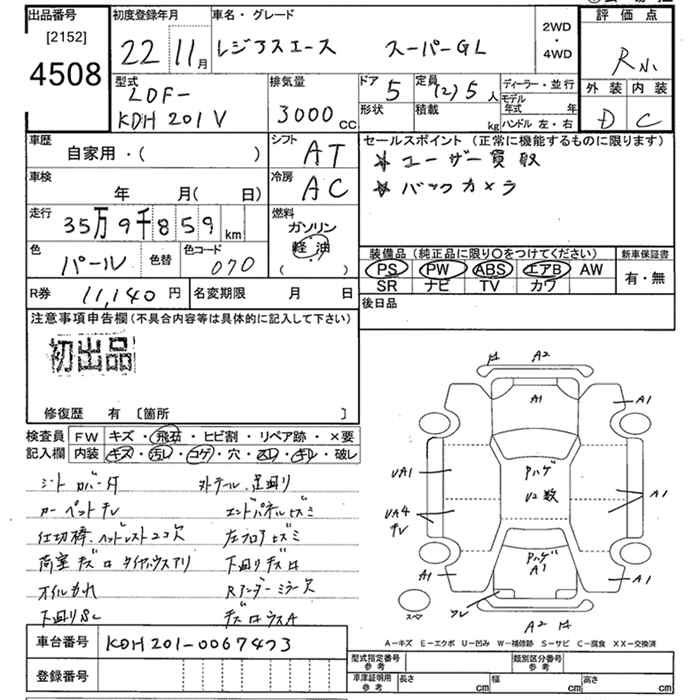 出品番号
[2152]
4508
初度登録年月
22 11月
車名・グレード
レジアスエース スーパーGL
2WD
・
4WD
評価点
外装 内装
D C
型式
LDF-
KDH201V
排気量
3000cc
ドア
5
定員
(2)5人
形状
積載
kg
ディーラー・並行
モデル年式 年
ハンドル 左・右
車歴
自家用・( )
シフト
AT
車検
年 月(日)
冷房
AC
走行
35万9千859km
燃料
ガソリン
軽油
( )
色
パール
色替
色コード
070
R券 11,140円
名変期限 月 日
セールスポイント (正常に機能するものに限ります)
☆ユーザー買取
☆バックカメラ
装備品(純正品に限り○をつけてください)
PS PW ABS エアB AW
SR ナビ TV カワ
新車保証書
有・無
後日品
注意事項申告欄(不具合内容等は具体的に記入して下さい)
初出品
修復歴 有 〔箇所 〕
検査員記入欄
FW キズ・飛石・ヒビ割・リペア跡・×要
内装 キズ・汚レ・コゲ・穴・スレ・キレ・破レ
シートカバー付
カーペットチレ
荷室キズ
オイルもれ
下廻りSC
外テール、足廻り
エンドパネルヒズミ
左フロアヒズミ
下廻りキズ
Rアンダーミラー欠
A2
A1
A1
UA1
Pハゲ
U2数
A1
UA4
Pハゲ
A1
A1
A2
スペア
A－キズ E－エクボ U－凹み W－補修跡 S－サビ C－腐食 XX－交換済
車台番号 KDH201-0067473
登録番号
型式指定番号 参考
類別区分番号 参考
車庫証明用 参考
長さ cm
幅 cm
高さ cm